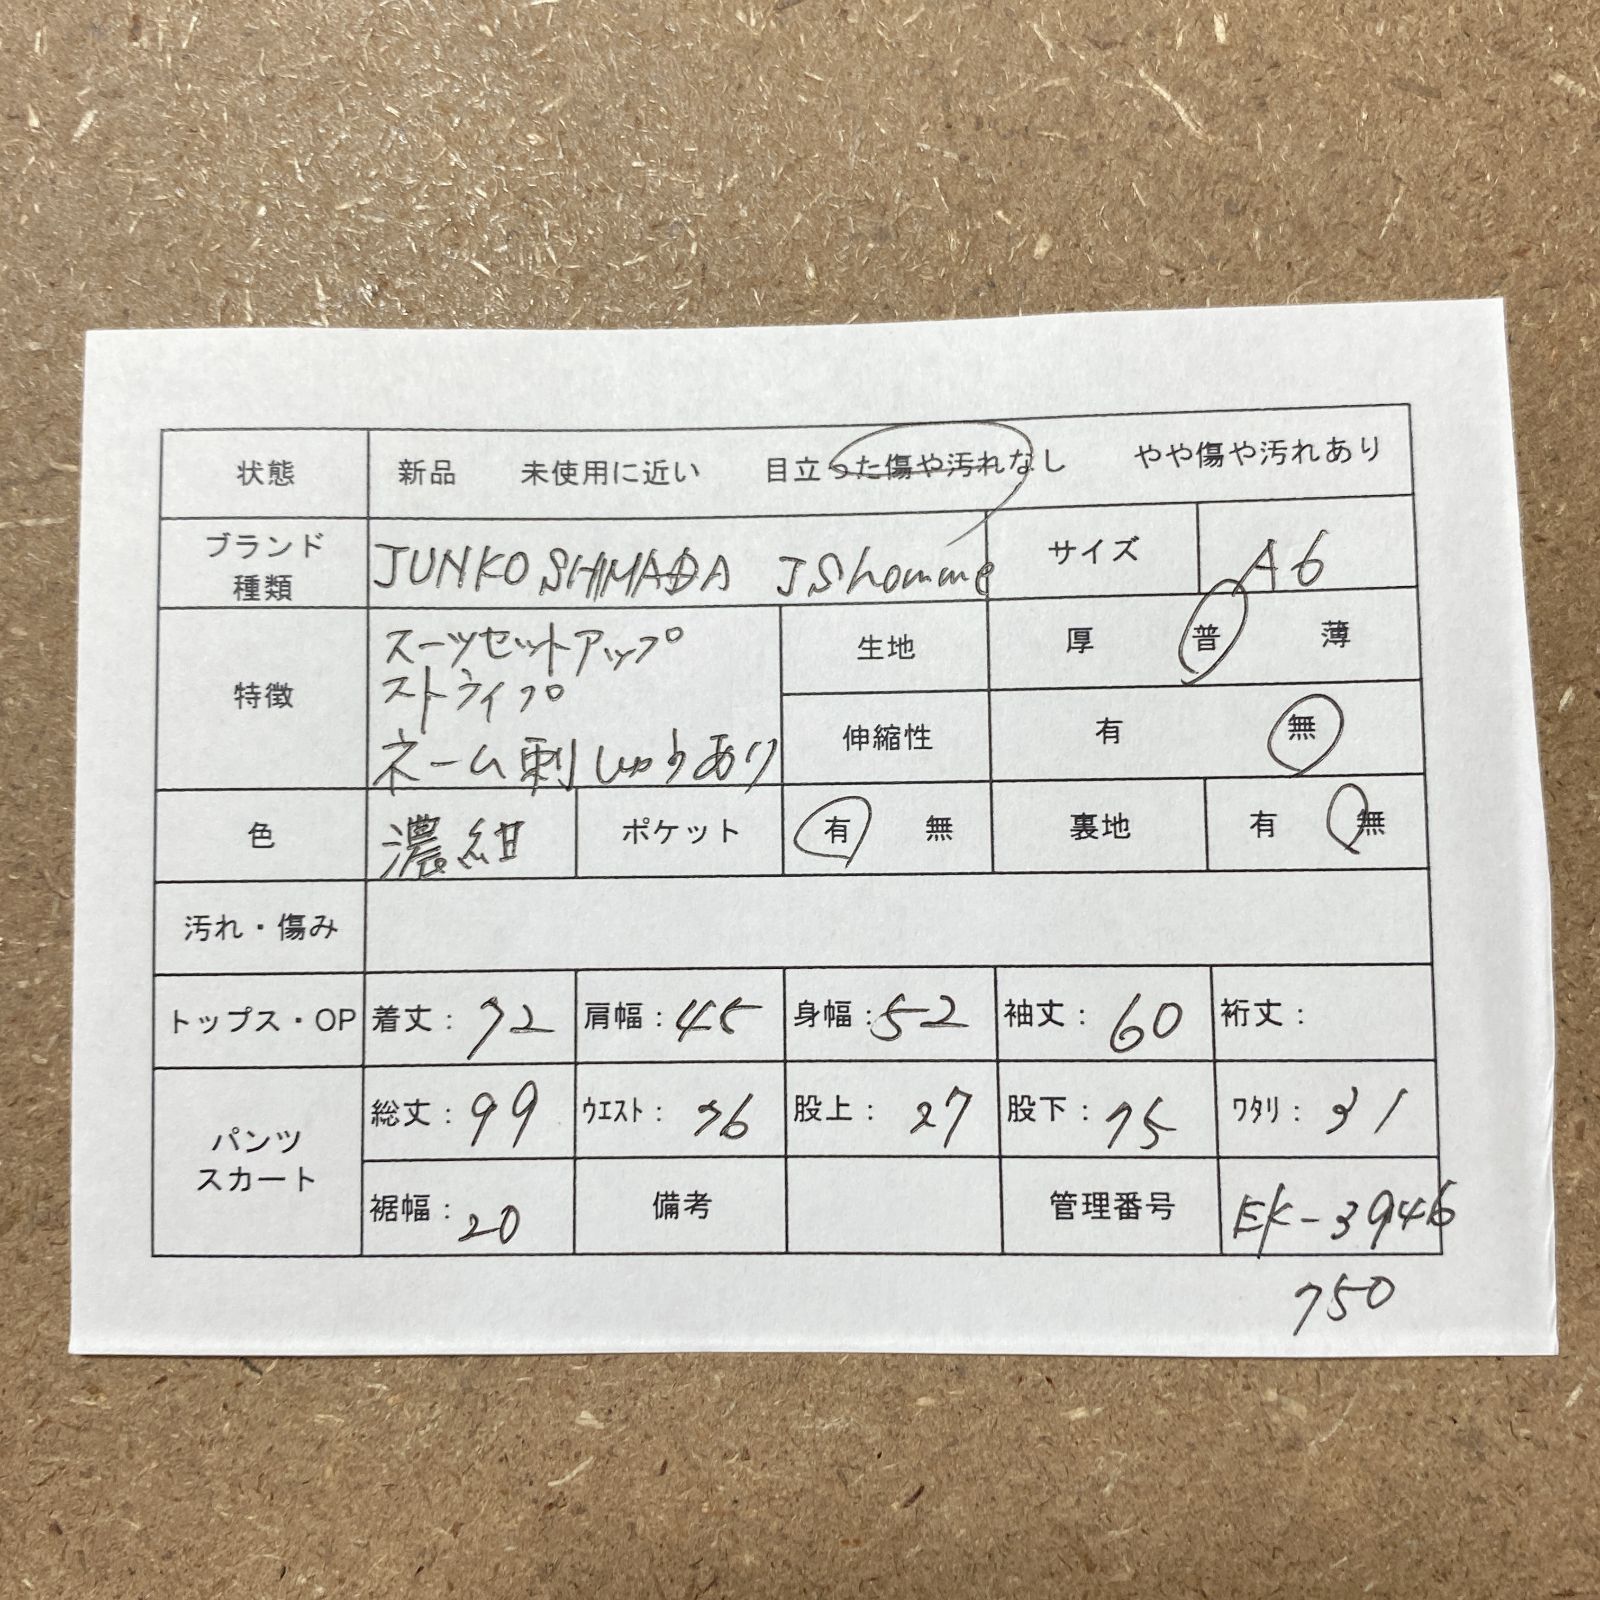 状態 新品 未使用に近い 目立った傷や汚れなし やや傷や汚れあり
ブランド 種類 JUNKO SHIMADA JShomme サイズ A6
特徴 スーツセットアップ
ストライプ
ネーム刺しゅうあり
生地 厚 普 薄
伸縮性 有 無
色 濃紺 ポケット 有 無 裏地 有 無
汚れ・傷み
トップス・OP 着丈: 72 肩幅: 45 身幅: 52 袖丈: 60 裄丈:
パンツ スカート 総丈: 99 ウエスト: 76 股上: 27 股下: 75 ワタリ: 31
裾幅: 20 備考 管理番号 EK-3946
750